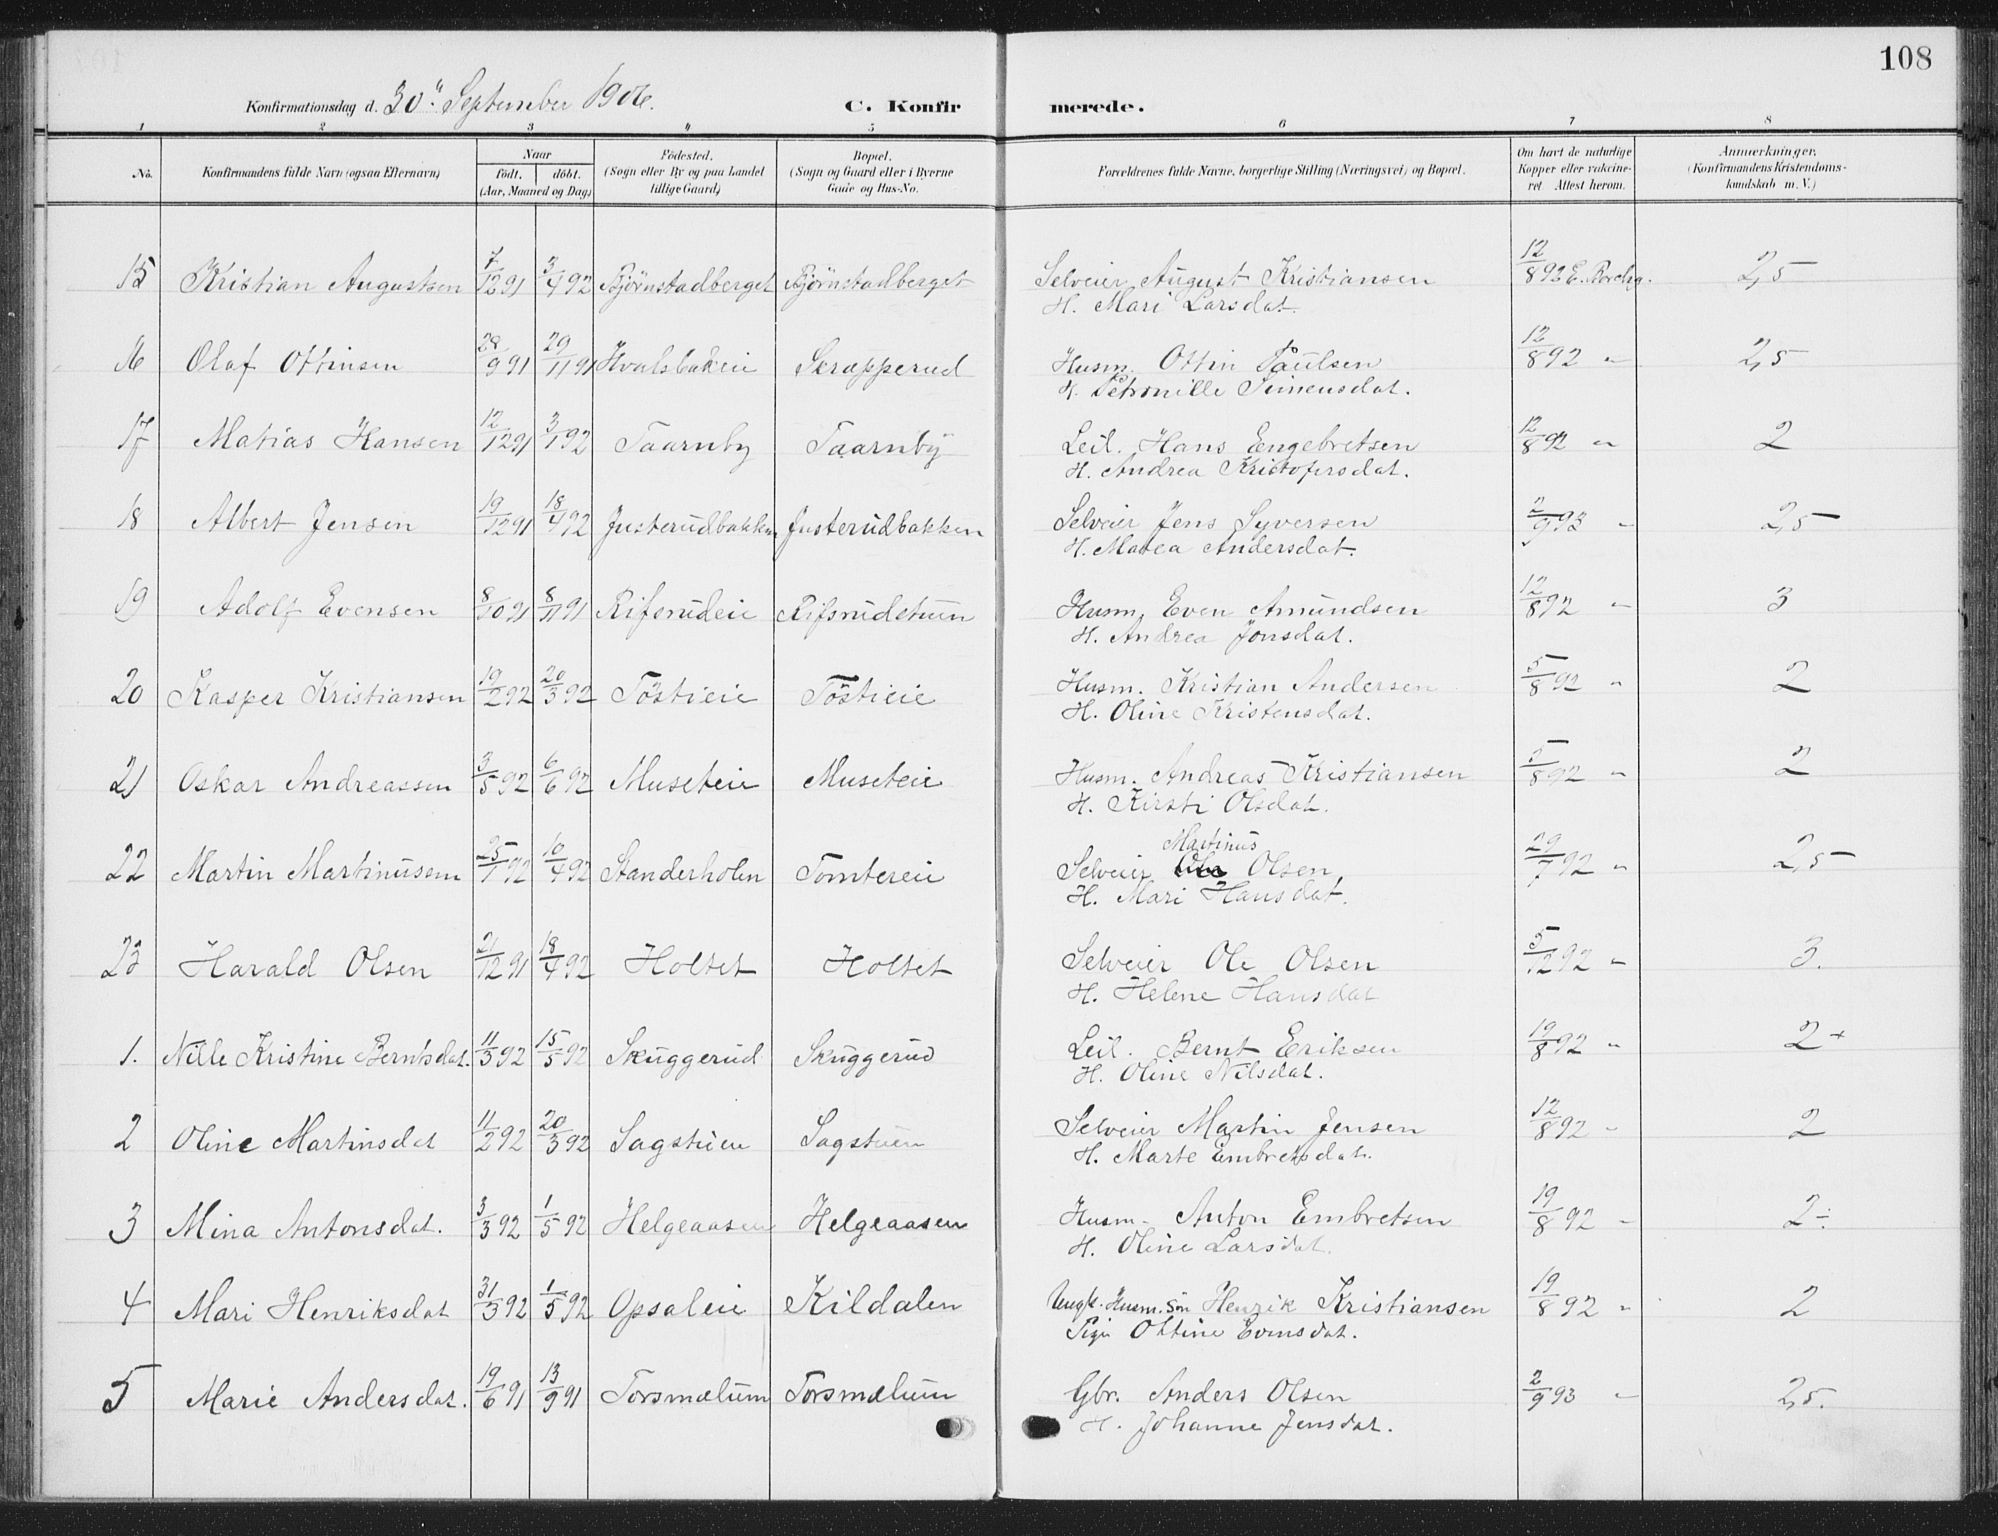 108
Konfirmationsdag d. 30te September 1906. C. Konfirmerede.
1 2 3 4 5 6 7 8
No. Konfirmandens fulde Navn (ogsaa Efternavn) Naar födt. döbt. (Aar, Maaned og Dag) Födested. (Sogn eller By og paa Landet tillige Gaard) Bopæl. (Sogn og Gaard eller i Byerne Gade og Hus-No. Forældrenes fulde Navne, borgerlige Stilling (Næringsvei) og Bopæl. Om havt de naturlige Kopper eller vakcineret Attest herom. Anmærkninger. (Konfirmandens Kristendomskundskab m. V.)
15 Kristian Augustsen 7/12 91 3/4 92 Bjørnstadberget Bjørnstadberget Selveier August Kristiansen 12/8 92 E. Borchg. 2,5
H. Mari Larsdat.
16 Olaf Ottinsen 28/9 91 29/11 91 Hvalsbakeie Skrapperud Husm. Ottin Paulsen 12/8 92 " 2,5
H. Petronille Simensdat.
17 Matias Hansen 12/12 91 3/1 92 Taarnby Taarnby Leil. Hans Engebretsen 12/8 92 " 2
H. Andrea Kristofersdat.
18 Albert Jensen 19/12 91 18/4 92 Justerudbakken Justerudbakken Selveier Jens Syversen 2/9 93 " 2,5
H. Matea Andersdat.
19 Adolf Evensen 8/10 91 8/11 91 Rifsrudeie Rifsrudstuen Husm. Even Amundsen 12/8 92 " 3
H. Andrea Jonsdat.
20 Kasper Kristiansen 19/2 92 20/3 92 Töstieie Töstieie Husm. Kristian Andersen 5/8 92 " 2
H. Oline Kristensdat.
21 Oskar Andreassen 3/5 92 6/6 92 Museteie Museteie Husm. Andreas Kristiansen 5/8 92 " 2
H. Kirsti Olsdat.
Martinus
22 Martin Martinusen 25/1 92 10/4 92 Standerholen Tomtereie Selveier Ole Olsen, 29/7 92 " 2,5
H. Mari Hansdat.
23 Harald Olsen 21/12 91 18/4 92 Holtet Holtet Selveier Ole Olsen 5/12 92 " 3.
H. Helene Hansdat
1. Nille Kristine Berntsdat. 11/3 92 15/5 92 Skuggerud Skuggerud Leil. Bernt Eriksen 19/8 92 " 2+
H. Oline Nilsdat.
2 Oline Martinsdat 11/2 92 20/3 92 Sagstuen Sagstuen Selveier Martin Jensen 12/8 92 " 2
H. Marte Embretsdat.
3 Mina Antonsdat. 3/3 92 1/5 92 Helgeaasen Helgeaasen Husm. Anton Embretsen 19/8 92 " 2÷
H. Oline Larsdat.
4 Mari Henriksdat 31/3 92 1/5 92 Opsaleie Kildalen Ungk. Husm. Sön Henrik Kristiansen 19/8 92 " 2
Pige Oktine Evensdat.
5 Marie Andersdat. 19/6 91 13/9 91 Torsmælum Torsmælum Gbr. Anders Olsen 2/9 93 " 2,5.
H. Johanne Jensdat.